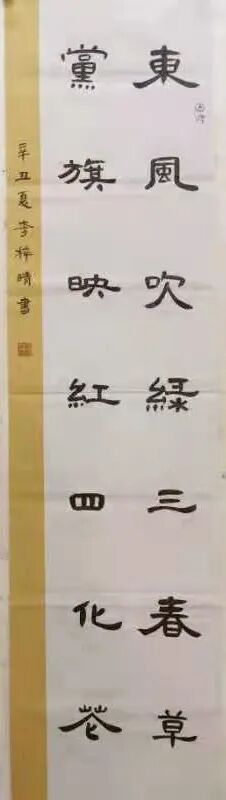 東風吹綠三春草
黨旗映紅四化花
辛丑夏李梓晴書